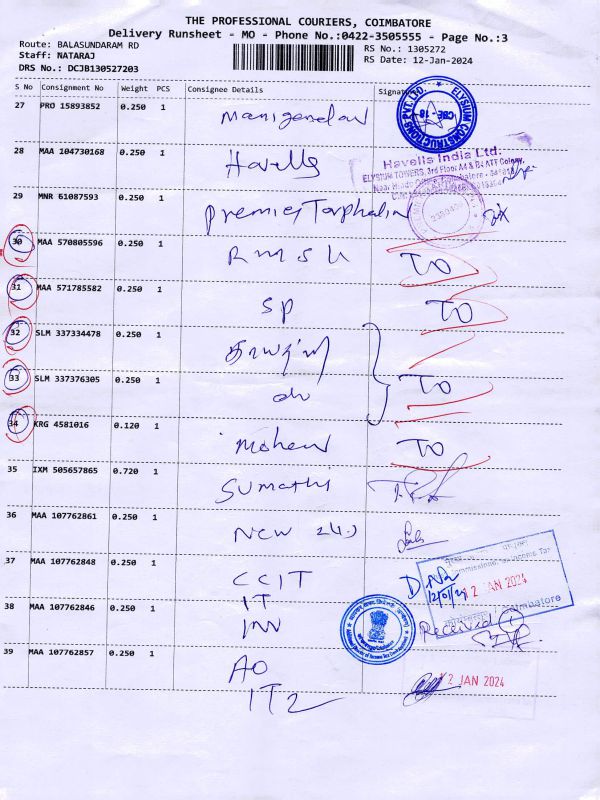 THE PROFESSIONAL COURIERS, COIMBATORE
Delivery Runsheet - MO - Phone No.:0422-3505555 - Page No.:3
Route: BALASUNDARAM RD RS No.: 1305272
Staff: NATARAJ RS Date: 12-Jan-2024
DRS No.: DCJB130527203
S No Consignment No Weight PCS Consignee Details Signature
27 PRO 15893852 0.250 1
ELYSIUM CONSTRUCTIONS PVT. LTD. CBE - 18
28 MAA 104730168 0.250 1 Havells
Havells India Ltd.
ELYSIUM TOWERS, 3rd Floor
29 MNR 61087593 0.250 1 Premier Tarphalin
30 MAA 570805596 0.250 1 TO
31 MAA 571785582 0.250 1 SP TO
32 SLM 337334478 0.250 1
33 SLM 337376305 0.250 1 do TO
34 KRG 4581016 0.120 1 Mohan TO
35 IXM 505657865 0.720 1 Sumathi
36 MAA 107762861 0.250 1
37 MAA 107762848 0.250 1 CCIT
12/01/24 12 JAN 2024
Coimbatore
38 MAA 107762846 0.250 1 IT
INV Received 1
39 MAA 107762857 0.250 1 AO 12 JAN 2024
IT2